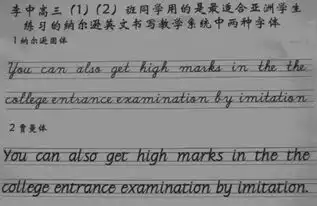 李中高三（1）（2）班同学用的是最适合亚洲学生
练习的纳尔逊英文书写教学系统中两种字体
1 纳尔逊圆体
You can also get high marks in the the
college entrance examination by imitation
2 曼体
You can also get high marks in the the
college entrance examination by imitation.